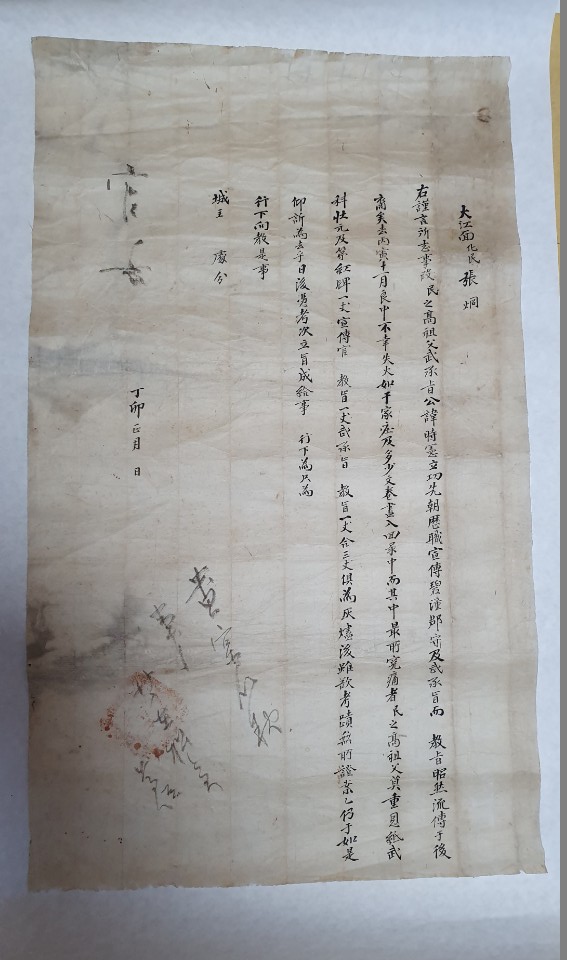 大江面化民 張烱
右謹言所志事段民之高祖父武承旨公諱時憲立功先朝歷職宣傳碧潼郡守及武承旨而 敎旨昭然流傳于後
裔矣去丙寅十一月良中不幸失火如干家庄及多少文卷盡入回祿中而其中最所寃痛者民之高祖父莫重國給武
科壯元及第紅牌一丈宣傳官 敎旨一丈武承旨 敎旨一丈合三丈俱爲灰燼後雖欲考蹟無所證業乙仍于如是
仰訴爲去乎日後憑考次立旨成給事 行下爲只爲
行下向敎是事
城主 處分
丁卯正月 日
官